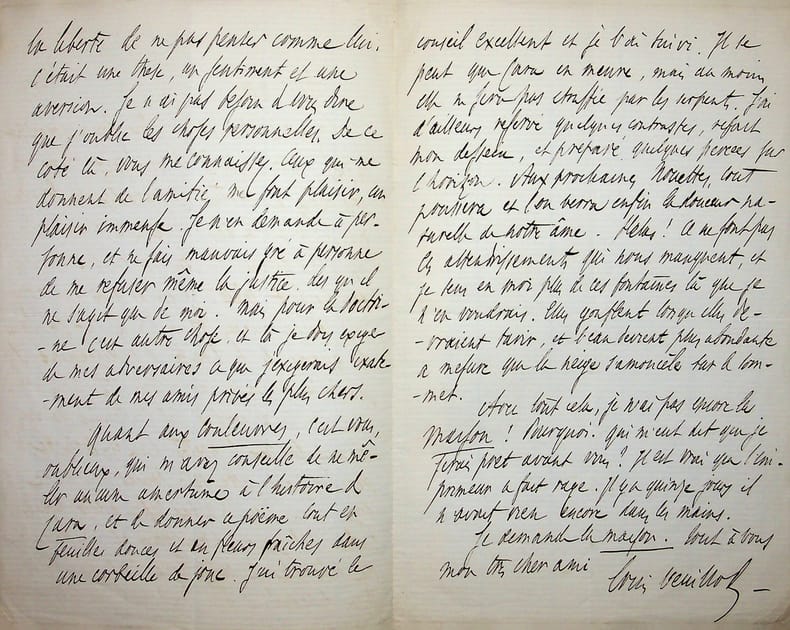 la liberté de ne pas penser comme lui.
c'était une thèse, un sentiment et une
aversion. Je n'ai pas besoin de vous dire
que j'oublie les choses personnelles. De ce
coté là, vous me connaissez. Ceux qui me
donnent de l'amitié, me font plaisir, un
plaisir immense. Je n'en demande à per-
sonne, et ne sais mauvais gré à personne
de me refuser même la justice, dès qu'il
ne s'agit que de moi. Mais pour la doctri-
-ne c'est autre chose, et là je dois exiger
de mes adversaires ce que j'exigerais exacte-
-ment de mes amis privés les plus chers.
Quant aux couleuvres, c'est vous,
oublieux, qui m'avez conseillé de ne mê-
-ler aucune amertume à l'histoire de
Çara, et de donner ce poëme tout en
feuilles douces et en fleurs fraîches dans
une corbeille de jonc. J'ai trouvé le
conseil excellent et je l'ai suivi. Il se
peut que Çara en meure, mais du moins
elle ne sera pas étouffée par les serpents. J'ai
d'ailleurs réservé quelques contrastes, refait
mon dessein, et préparé quelques percées sur
l'horizon. Aux prochaines Rosettes, tout
poussera et l'on verra enfin la douceur na-
turelle de notre âme. Hélas! Ce ne sont pas
les attendrissements qui nous manquent, et
je sens en moi plus de ces fontaines là que je
n'en voudrais. Elles gonflent lorsqu'elles de-
-vraient tarir, et l'eau devient plus abondante
a mesure que la neige s'amoncèle sur le som-
-met.
Avec tout cela, je n'ai pas encore la
maison! Pourquoi. Qui m'eut dit que je
serais prêt avant vous? Il est vrai que l'im-
primeur a fait rage. Il y a quinze jours il
n'avait rien encore dans les mains.
Je demande la maison. Tout à vous
mon très cher ami
Louis Veuillot –